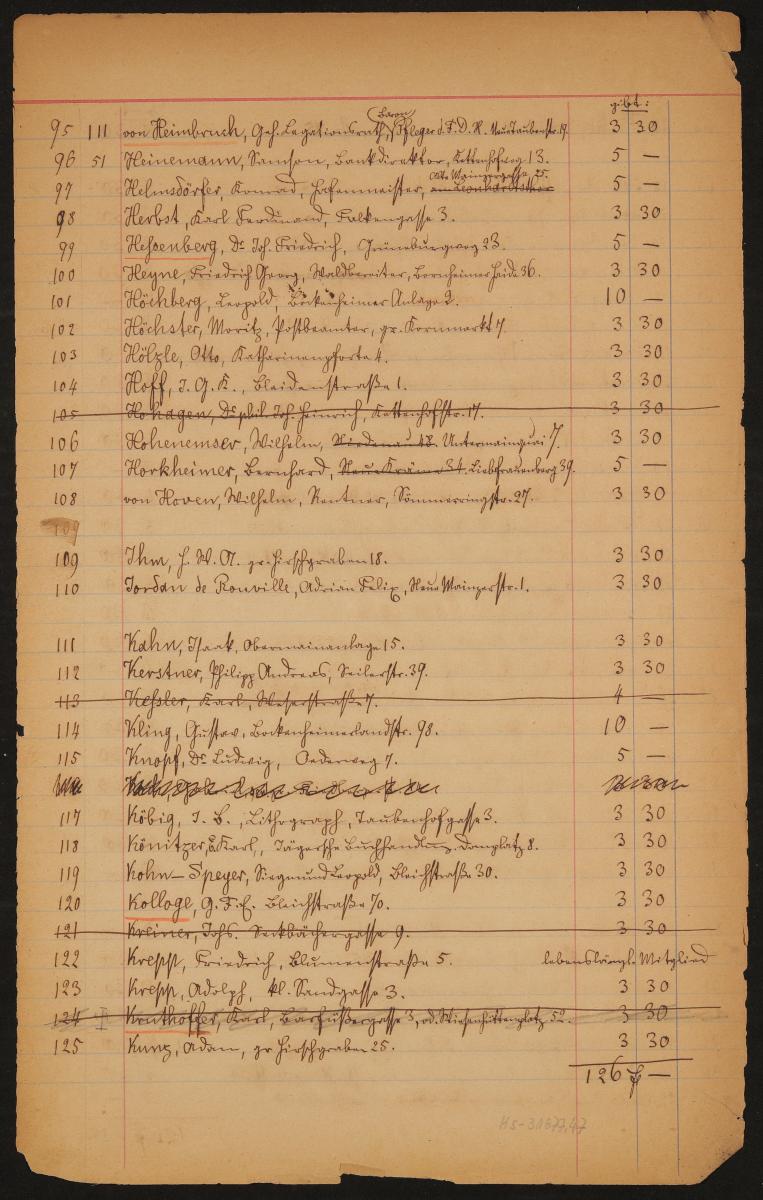 gibt:
95 111 von Heimbruch, Geh. Legationsrath, Baron, Pfleger d. F. D. H. Neue Taubenstr. 19. 3 30
96 51 Heinemann, Samson, Bankdirektor, Kettenhofweg 13. 5 —
Alte Mainzergasse 25.
97 Helmsdörfer, Konrad, Hafenmeister, am Leonhardsthor 5 —
98 Herbst, Karl Ferdinand, Falkengasse 3. 3 30
99 Hessenberg, Dr. Joh. Friedrich, Grüneburgweg 23. 5 —
100 Heyne, Friedrich Georg, Waldbereiter, Bornheimer Heide 36. 3 30
101 Höchberg, Leopold, Bockenheimer Anlage 2. 10 —
102 Höchster, Moritz, Postbeamter, gr. Kornmarkt 7. 3 30
103 Hölzle, Otto, Katharinenpforte 4. 3 30
104 Hoff, J. G. K., Bleidenstraße 1. 3 30
105 Hohagen, Dr. phil. Joh. Heinrich, Kettenhofstr. 17. 3 30
106 Hohenemser, Wilhelm, Nordenau 18. Untermainquai 7. 3 30
107 Horkheimer, Bernhard, Neue Kräme 34. Liebfrauenberg 39. 5 —
108 von Hoven, Wilhelm, Rentner, Sömmerringstr. 27. 3 30
109
109 Ihm, H. W. A. gr. Hirschgraben 18. 3 30
110 Jordan de Rouville, Adrian Felix, Neue Mainzerstr. 1. 3 30
111 Kahn, Isaak, Obermainanlage 15. 3 30
112 Kerstner, Philipp Andreas, Seilerstr. 39. 3 30
113 Kessler, Karl, Weserstraße 7. 4 —
114 Kling, Gustav, Bockenheimerlandstr. 98. 10 —
115 Knopf, Dr. Ludwig, Oederweg 7. 5 —
117 Köbig, J. B., Lithograph, Taubenhofgasse 3. 3 30
118 Könitzer, Karl, Jägersche Buchhandlung. Domplatz 8. 3 30
119 Kohn-Speyer, Siegmund Leopold, Bleichstraße 30. 3 30
120 Kolloge, G. F. E. Bleichstraße 70. 3 30
121 Kreiner, Johs. Seckbächergasse 9. 3 30
122 Krepp, Friedrich, Blumenstraße 5. lebenslängl. Mitglied
123 Krepp, Adolph, kl. Sandgasse 3. 3 30
124 Kruthoffer, Karl, Barfüßergasse 3, od. Wiesenhüttenplatz 52. 3 30
125 Kunz, Adam, gr. Hirschgraben 25. 3 30
126 —